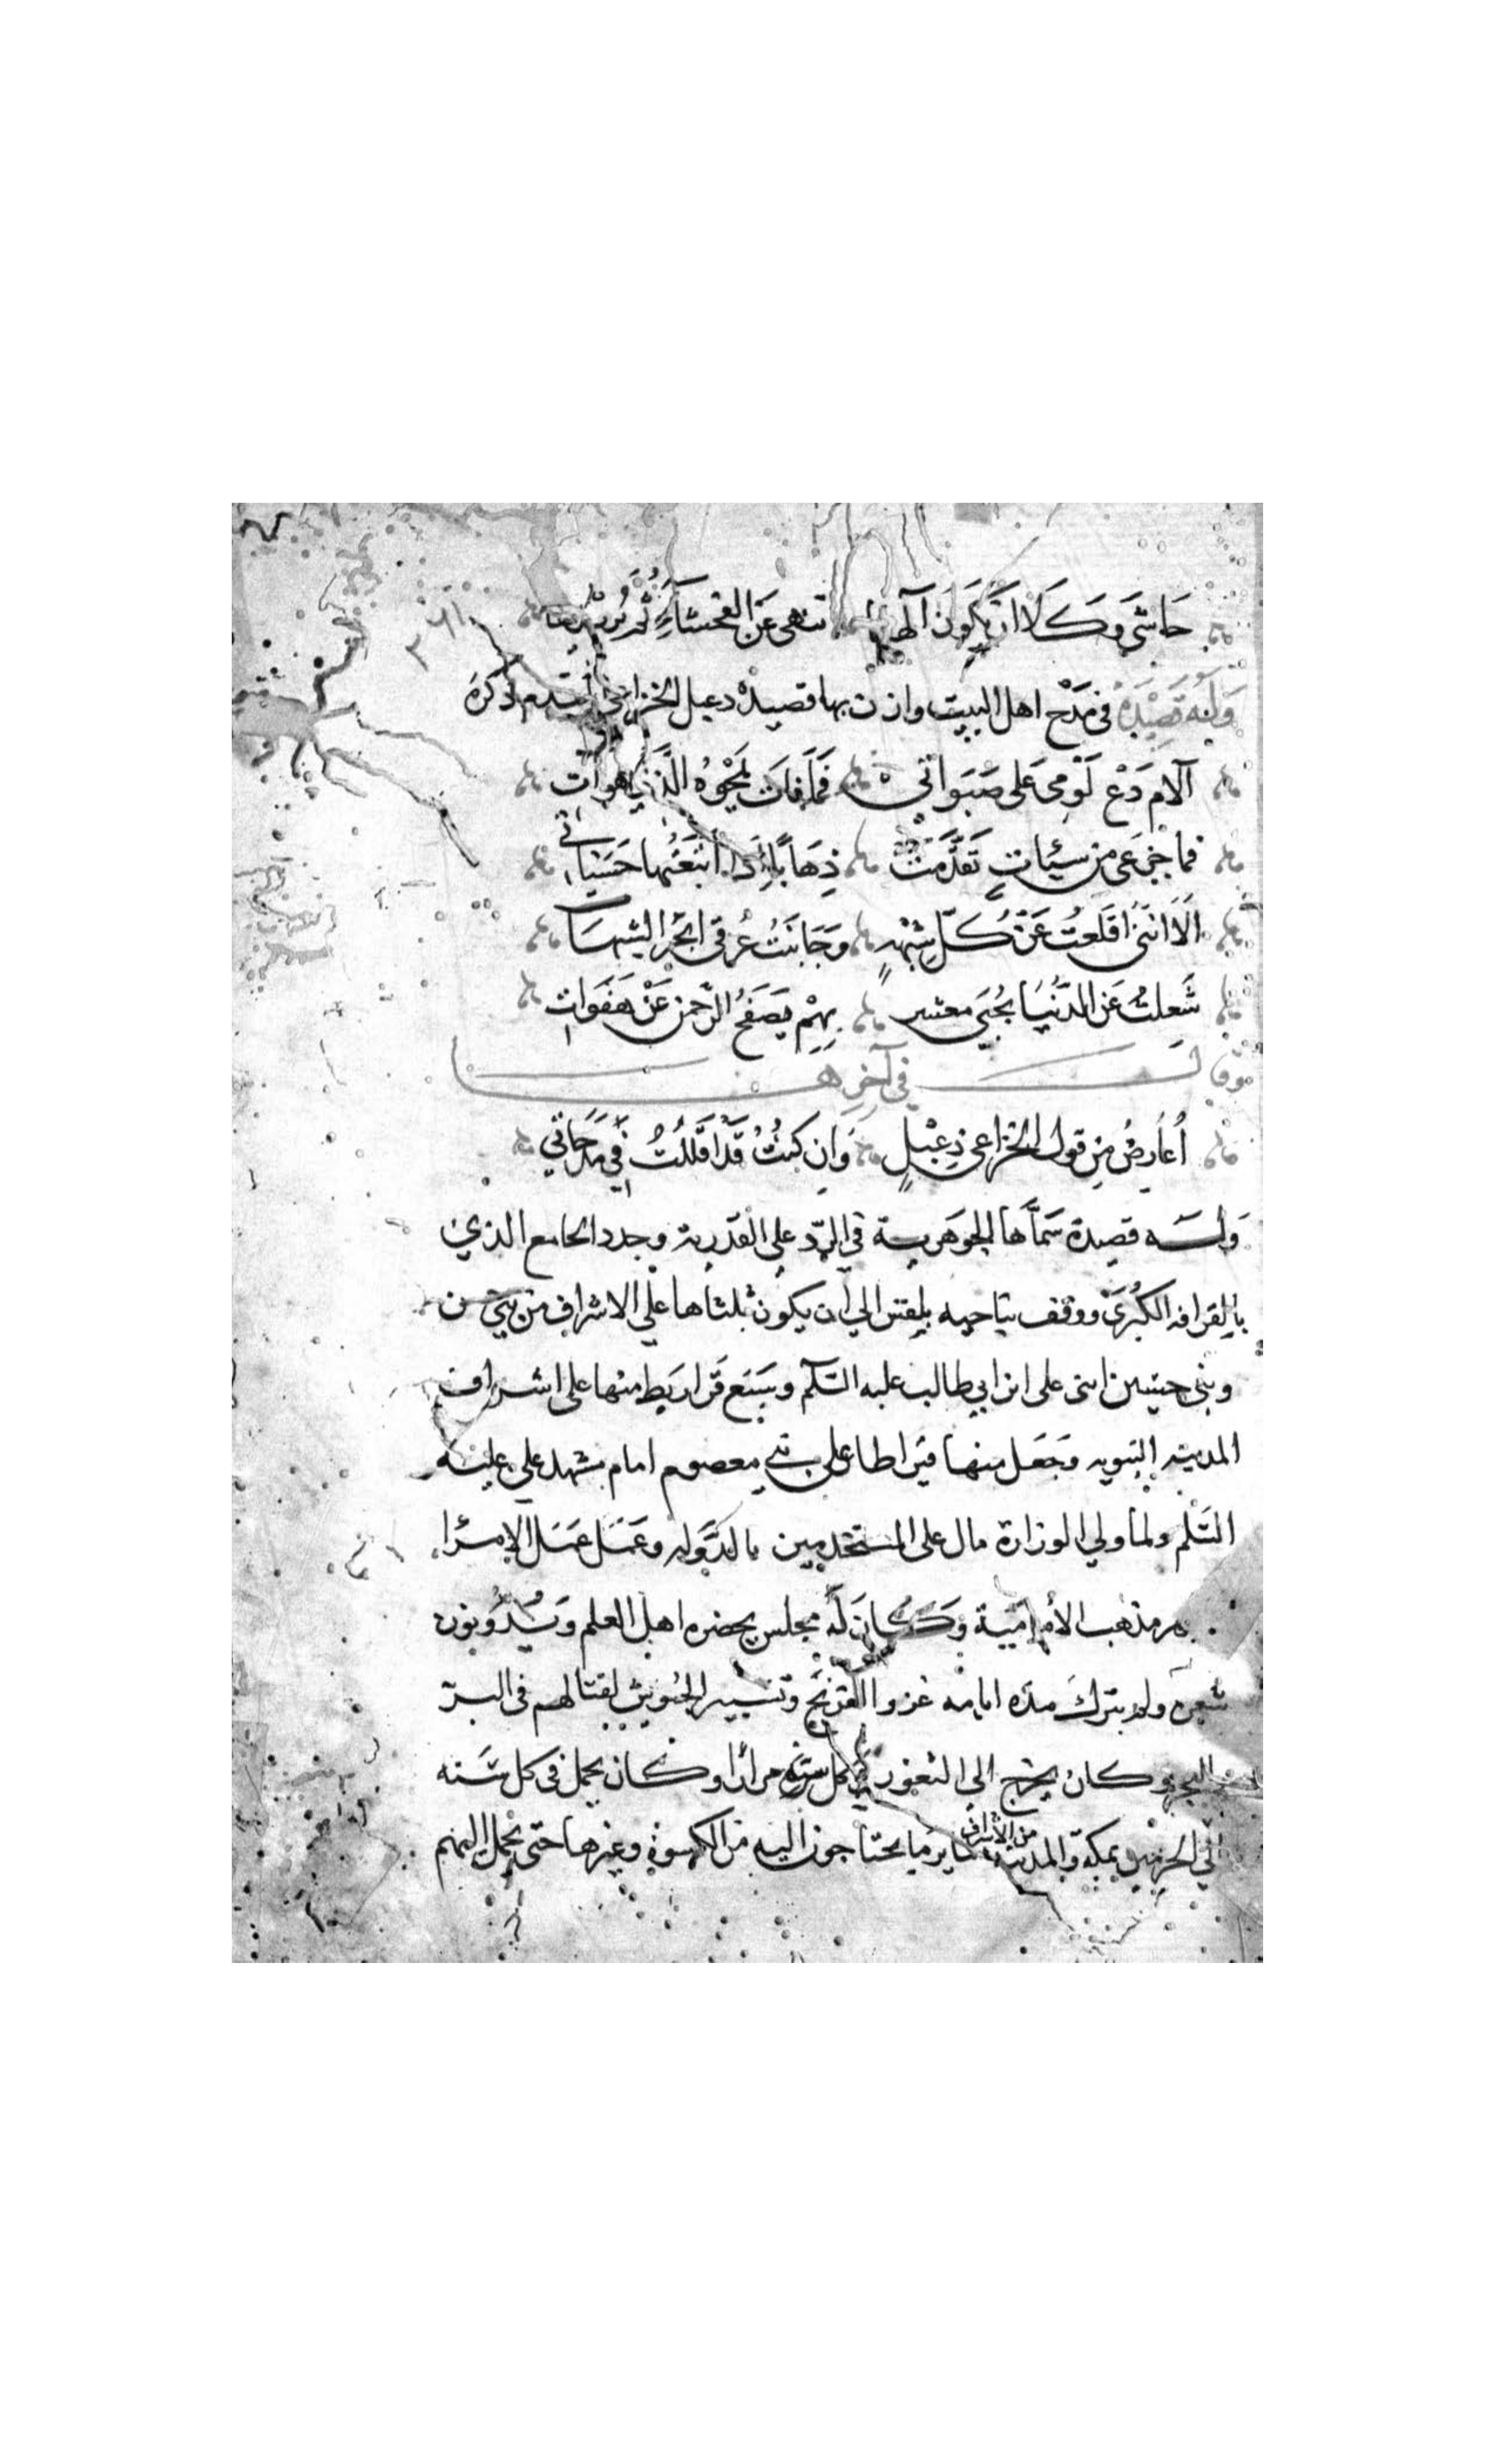 حَاشَى وَكَلَّا اَنْ يَكُونَ الهنا تنهى عَنِ الفحشآءِ ثُمَّ يُرِيْدُ
وَلَهُ قَصِيْدَةٌ في مَدْح اهل البيت وازن بها قصيدة دعبل الخزاعي ذكرَ
آلام دَعْ لَوْمى عَلى صَبَوَاتى فَمَا فَاتَ يَمْحُوْهُ الَّذي هو آت
فما جَزعى من سيئاتٍ تَقَدَّمَتْ ذِهَابًا إِذَا اتْبَعْتُها حَسَنَاتى
الَا انَّنى اقلعتُ عَنْ كُلِّ شُبْهَةٍ وَجَانَبْتُ غرقى ابْحُر الشبهَات
شُغِلتُ عَن الدُّنْيَا بحُبى معشر بِهِمْ يَصْفَحُ الرَّحمن عَنْ هَفَوَات
وقالـــــــ في آخِرِهَـــــــا
أُعَارِضُ مِن قول الخزاعى دِعْبلٍ وَانِ كنتُ قَدْ اقْلَلْتُ فِي مدحَاتى
وَلَـــه قصيدة سَمَّاها الجوهَرية في الردّ على القدرية وجدد الجامع الذي
بالقرافه الكُبْرىَ ووقف ناحيه بلقس الي ان يكون ثلثاها على الاشراف من بني حسن
وبنى حسين ابنى على ابن ابي طالب عليه السَّلام وسَبَع قَراريط منها على اشراف
المدينه النبويه وَجَعَل منها قيراطا على بني معصوم امام مشهد علي عليه
السَّلم ولما ولي الوزارة مال على المستخدمين بالدَّوله وعَمَل عَمَل الامرا
مذهب الأمامَيَة وَكَانَ لَه مجلس يحضره اهل العلم وَيُدَوِّنون
شعره ولم يترك مدَه ايامه غزو الفرنج وتسيير الجيوش لقتالهم فى البرّ
البحر وكان يخرج الى الثغور في كل سَنَه مرارًا وكان يحمل فى كل سَنه
الي الحرمين بمكة والمدينه من الاشراف سَاير مَا يحتاجون اليه من الكسوة وغيرها حتى يحمل اليهم